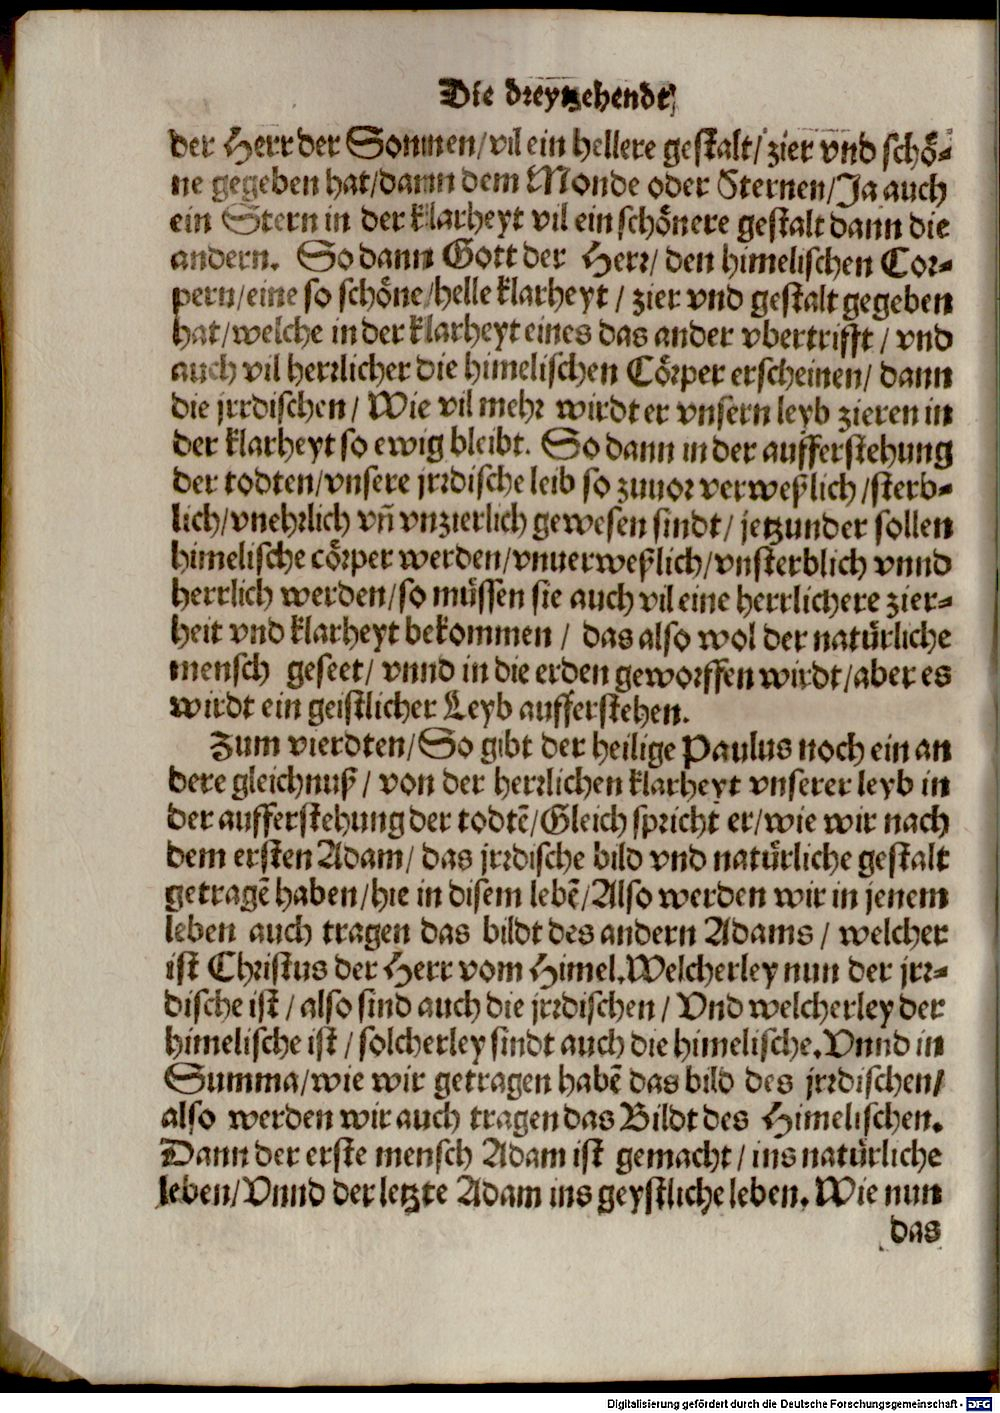 Die dreytzehendt
der Herr der Sonnen/vil ein hellere gestalt/zier vnd schö-
ne gegeben hat/dann dem Monde oder Sternen/Ja auch
ein Stern in der klarheyt vil ein schönere gestalt dann die
andern. So dann Gott der Herr/ den himelischen Cor-
pern/eine so schöne/helle klarheyt / zier vnd gestalt gegeben
hat/welche in der klarheyt eines das ander vbertrifft / vnd
auch vil herrlicher die himelischen Cörper erscheinen/ dann
die jrrdischen/ Wie vil mehr wirdt er vnsern leyb zieren in
der klarheyt so ewig bleibt. So dann in der aufferstehung
der todten/vnsere jrrdische leib so zuuor verweßlich /sterb-
lich/vnehrlich vñ vnzierlich gewesen sindt/ jetzunder sollen
himelische cörper werden/vnuerweßlich/vnsterblich vnnd
herrlich werden/so müssen sie auch vil eine herrlichere zier-
heit vnd klarheyt bekommen / das also wol der natürliche
mensch geseet/ vnnd in die erden geworffen wirdt/aber es
wirdt ein geistlicher Leyb aufferstehen.
Zum vierdten/So gibt der heilige Paulus noch ein an
dere gleichnuß / von der herrlichen klarheyt vnserer leyb in
der aufferstehung der todtē/Gleich spricht er/wie wir nach
dem ersten Adam/ das jrrdische bild vnd natürliche gestalt
getragē haben/hie in disem lebē/Also werden wir in jenem
leben auch tragen das bildt des andern Adams / welcher
ist Christus der Herr vom Himel.Welcherley nun der jrr-
dische ist / also sind auch die jrrdischen / Vnd welcherley der
himelische ist / solcherley sindt auch die himelische.Vnnd in
Summa/wie wir getragen habē das bild des jrrdischen/
also werden wir auch tragen das Bildt des Himelischen.
Dann der erste mensch Adam ist gemacht / ins natürliche
leben/Vnnd der letzte Adam ins geystliche leben. Wie nun
das
Digitalisierung gefördert durch die Deutsche Forschungsgemeinschaft - DFG